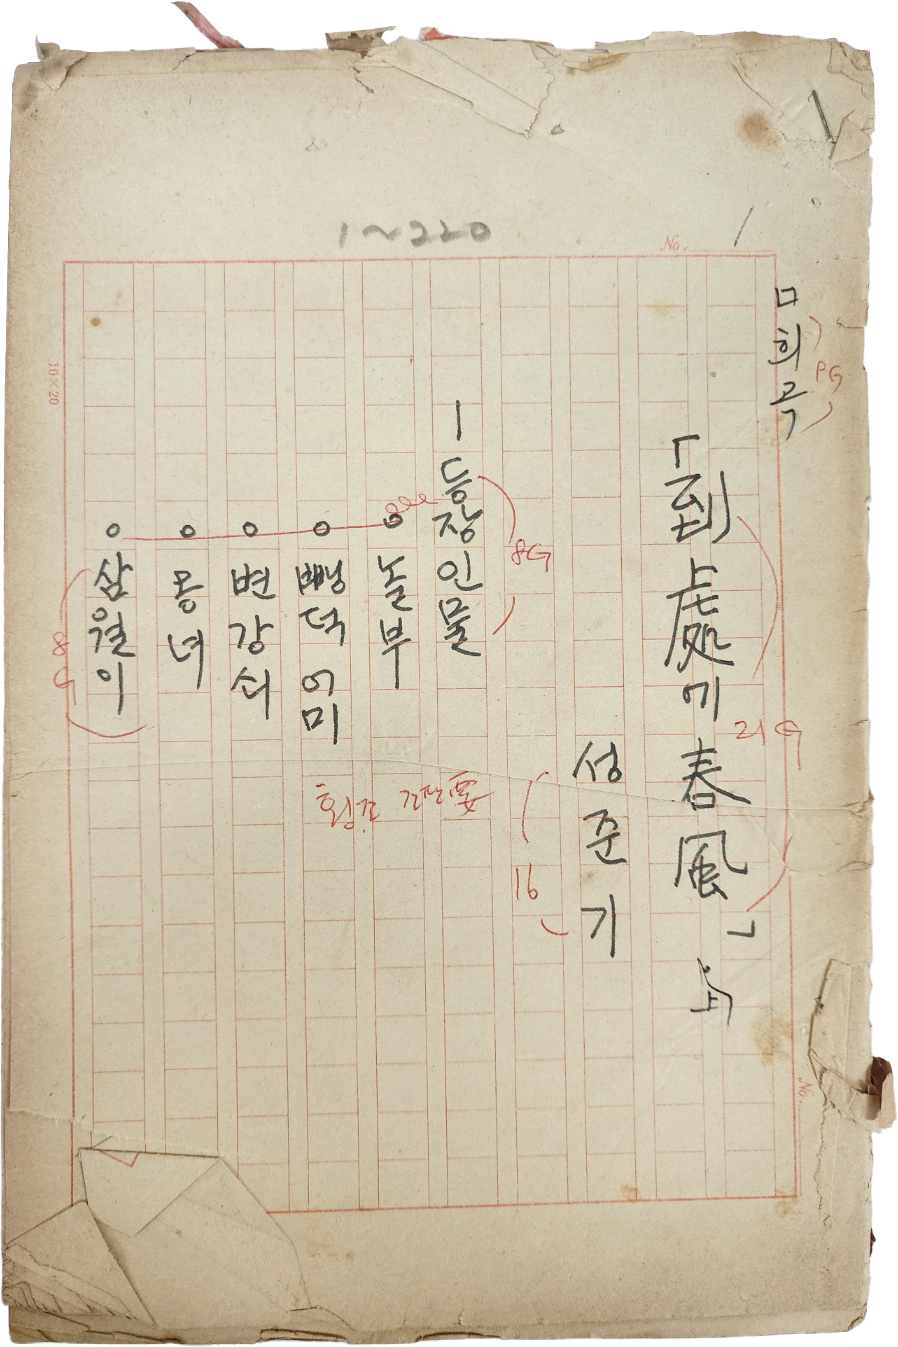 1~220
No. 1
ㅁ희곡
PG
「到處에春風」 上
21G
성준기
16
ㅡ등장인물
8G
ㅇ놀부
ㅇ뺑덕어미
ㅇ변강쇠
ㅇ옹녀
ㅇ삼월이
10×20
No.